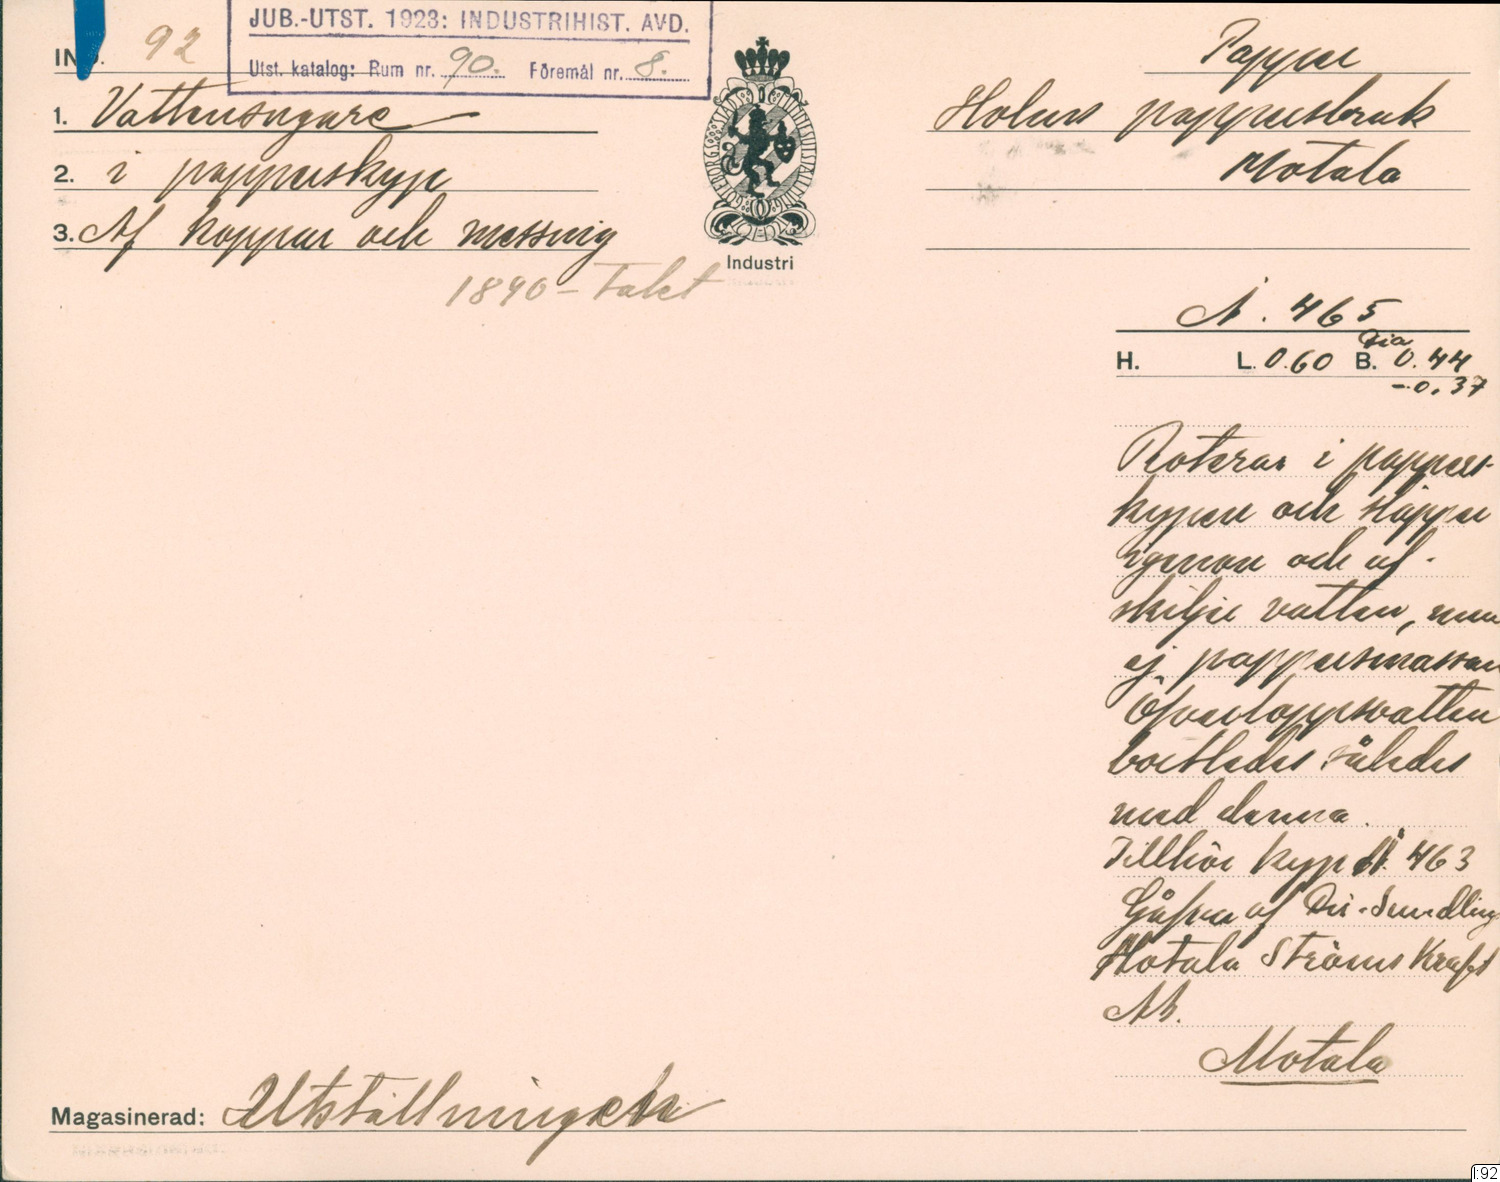 JUB.-UTST. 1923: INDUSTRIHIST. AVD.
Utst. katalog: Rum nr. 90. Föremål nr. 8.
92
1. Vattensugare
2. i papperskyp
3. Af koppar och messing
1890-talet
GÖTEBORGS STADS JUBILEUMSUTSTÄLLNING
Industri
Papper
Holms pappersbruk
Motala
N. 465
H. L. 0.60 B. Dia 0.44
-0.37
Roterar i pappers-
kypen och släpper
igenom och af-
skilje vatten, men
ej pappersmassan
Öfverloppsvatten
bortledes således
med denna.
Tillhör kyp N. 463
Gåfva af Dir. Sundling
Motala Ströms Kraft
AB.
Motala
Magasinerad: Utställningen
I:92